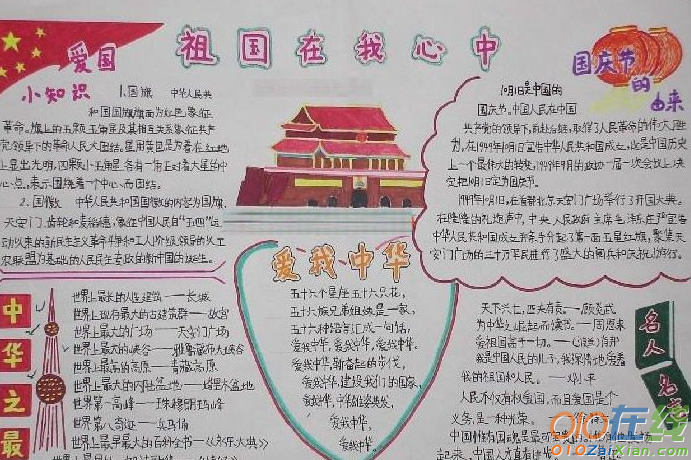 祖国在我心中
爱国
小知识
1.国旗 中华人民共
和国国旗旗面为红色,象征
革命。旗上的五颗五角星及其相互关系象征共产
党领导下的革命人民大团结。星用黄色是为着在红地
上显出光明,四颗小五角星各有一角正对着大星的中
心点,表示围绕着一个中心而团结。
2.国徽 中华人民共和国国徽的内容为国旗、
天安门、齿轮和麦稻穗,象征中国人民自"五四"运
动以来的新民主主义革命斗争和工人阶级领导的以工
农联盟为基础的人民民主专政的新中国的诞生。
国庆节
的
由来
10月1日是中国的
国庆节。中国人民在中国
共产党的领导下,前赴后继,取得了人民革命的伟大胜
利,在1949年10月1日宣告中华人民共和国成立,这是中国历史
上一个最伟大的转变,1949年9月的政协一届一次会议上决
定把10月1日定为国庆节。
1949年10月1日,在首都北京天安门广场举行了开国大典。
在隆隆的礼炮声中,中央人民政府主席毛泽东庄严宣布
中华人民共和国成立并亲手升起了第一面五星红旗。聚集天
安门广场的三十万军民进行了盛大的阅兵和庆祝游行。
爱我中华
五十六个星座五十六只花,
五十六族兄弟姐妹是一家,
五十六种语言汇成一句话,
爱我中华,爱我中华,爱我中华。
爱我中华,健奋起的步伐,
爱我中华,建设我们的国家,
爱我中华,
爱我中华,
爱我中华。
中华之最
世界上最长的人性建筑——长城
世界上政府最大的古建筑群——故宫
世界上最大的广场——天安门广场
世界上最大的峡谷——雅鲁藏布大峡谷
世界上最高的高原——青藏高原
世界上最大的内陆盆地——塔里木盆地
世界第一高峰——珠穆朗玛峰
世界第八奇迹——兵马俑
世界上最早最大的百种全书——《永乐大典》
名人名言
天下兴亡,匹夫有责。——顾炎武
为中华之崛起而读书。——周恩来
我是中国人民的儿子,我深情地爱着
我的祖国和人民。——邓小平
人民不仅有权爱国,而且爱国是个
义务,是一种光荣。
010在线
010zaixian.com